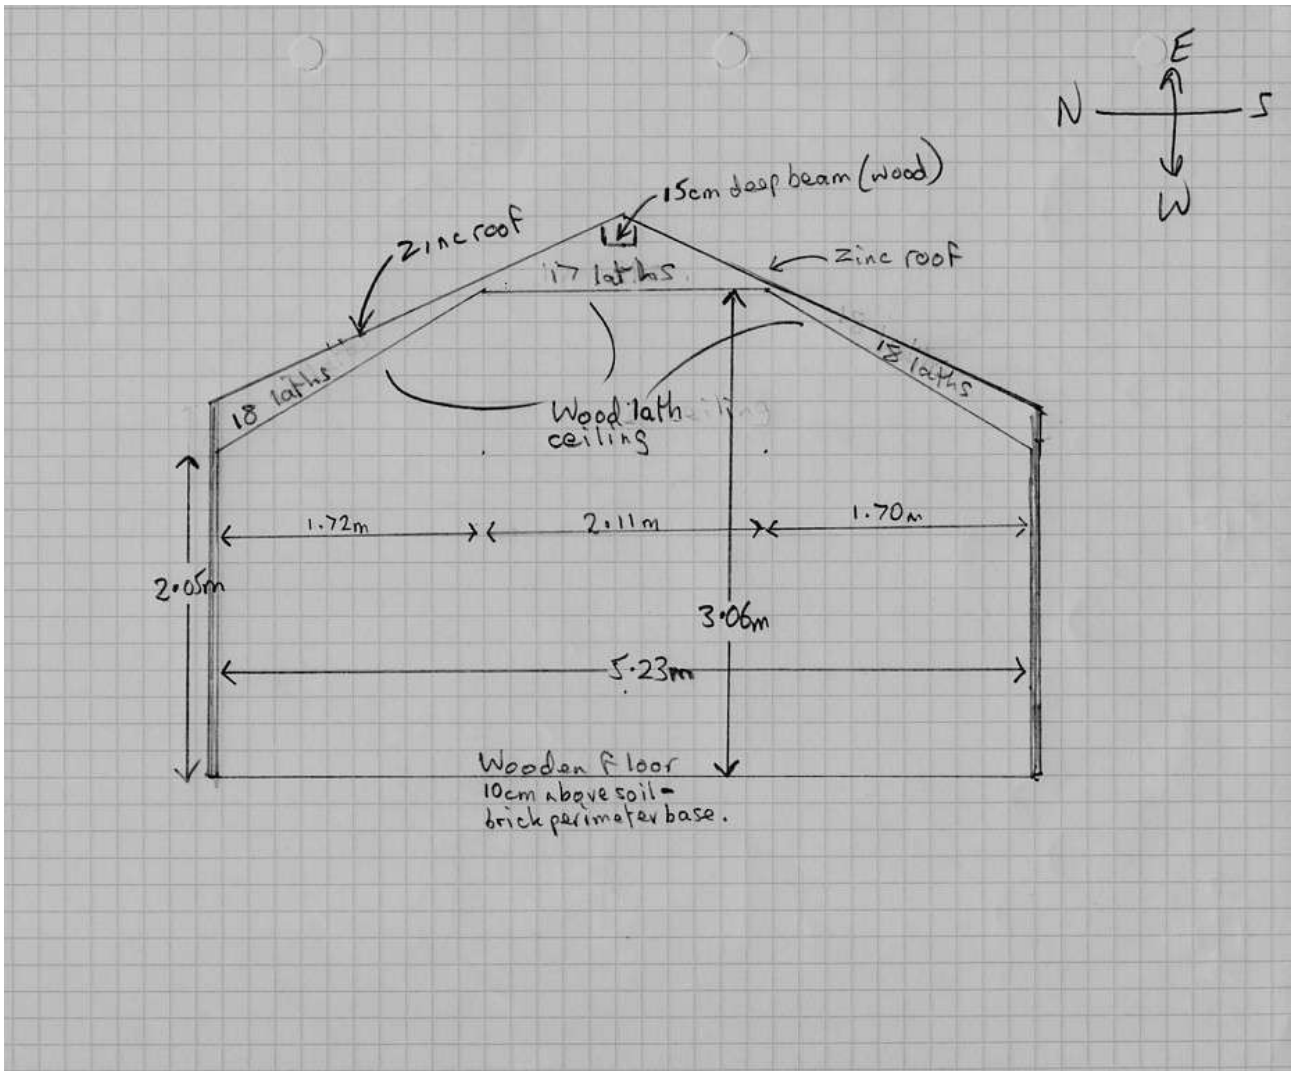 E
N S
W
15cm deep beam (wood)
Zinc roof
Zinc roof
17 laths
18 laths
18 laths
Wood lath
ceiling
1.72m
2.11m
1.70m
2.05m
3.06m
5.23m
Wooden floor
10cm above soil-
brick perimeter base.